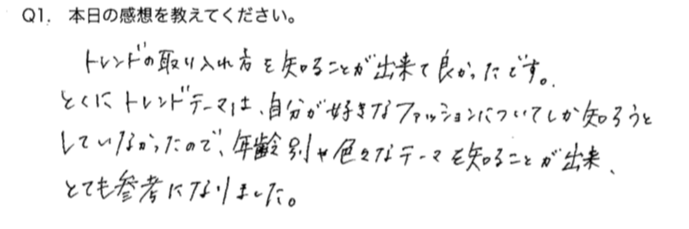 Q1. 本日の感想を教えてください。
トレンドの取り入れ方を知ることが出来て良かったです。
とくにトレンドテーマは、自分が好きなファッションについてしか知ろうと
していなかったので、年齢別や色々なテーマを知ることが出来、
とても参考になりました。